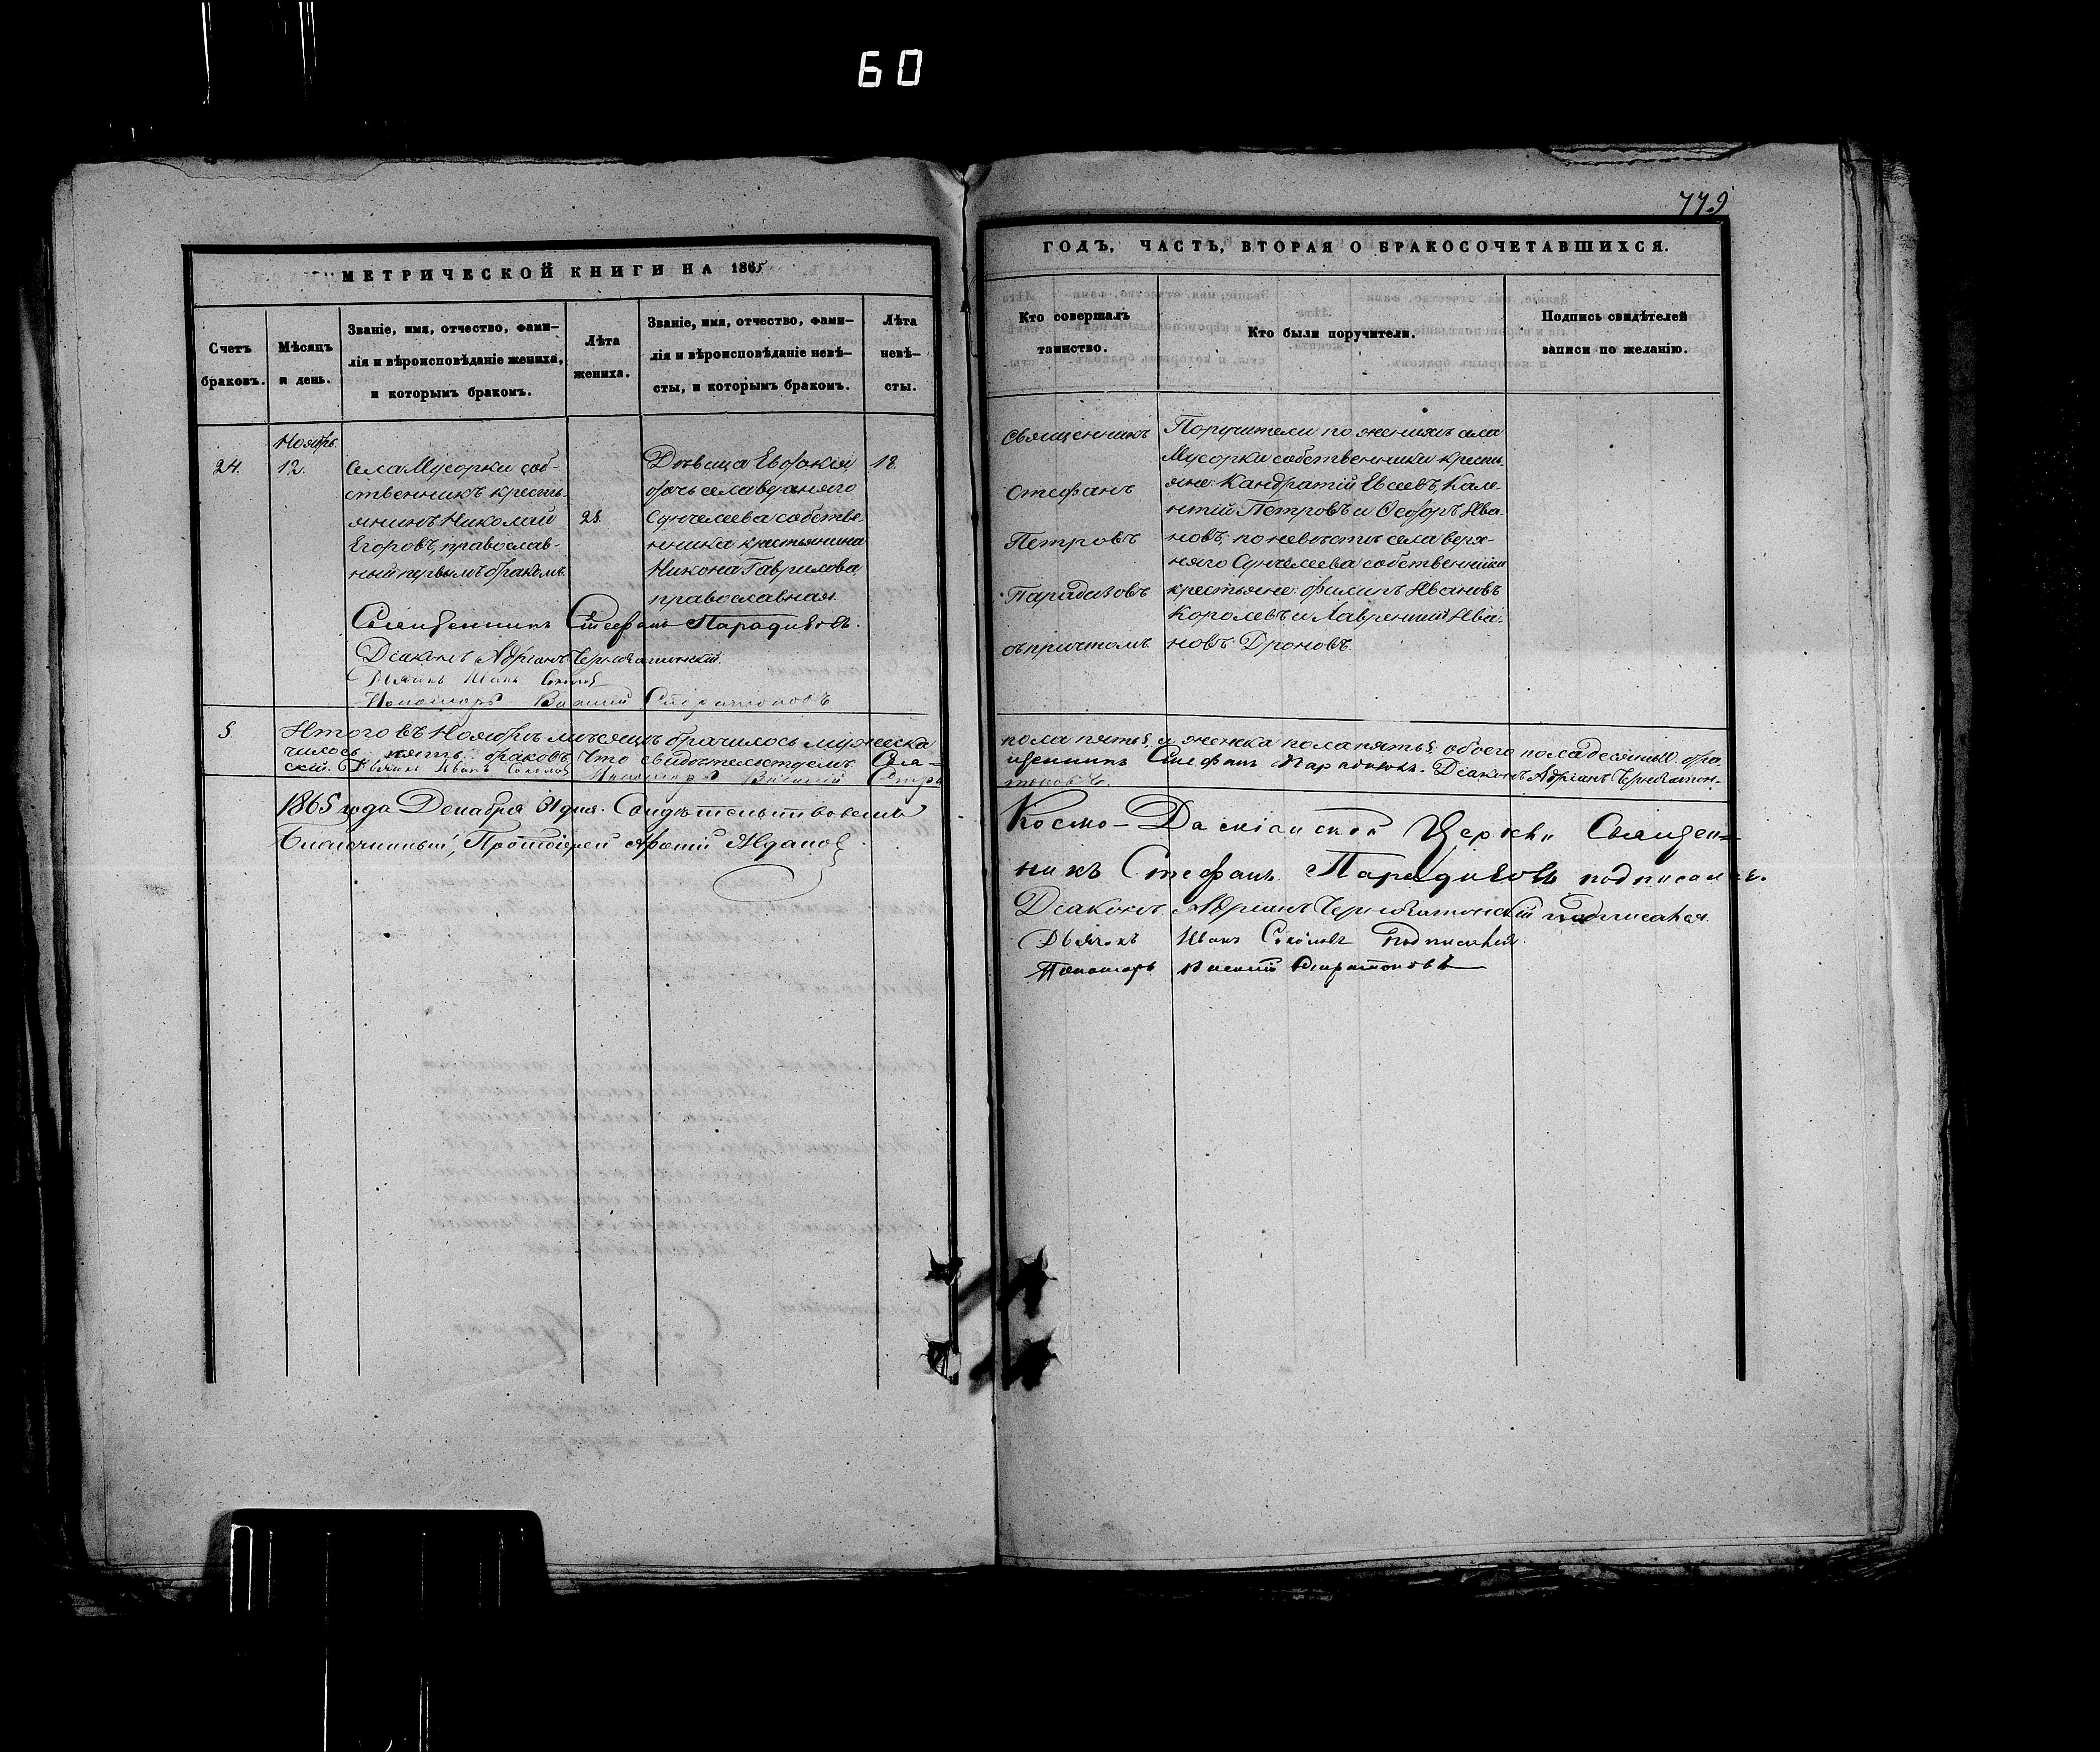 60
779
МЕТРИЧЕСКОЙ КНИГИ НА 1865
ГОДЪ, ЧАСТЬ, ВТОРАЯ О БРАКОСОЧЕТАВШИХСЯ.
Счетъ
браковъ.
Мѣсяцъ
и день.
Званіе, имя, отчество, фами-
лія и вѣроисповѣданіе жениха,
и которымъ бракомъ.
Лѣта
жениха.
Званіе, имя, отчество, фами-
лія и вѣроисповѣданіе невѣ-
сты, и которымъ бракомъ.
Лѣта
невѣ-
сты.
Кто совершалъ
таинство.
Кто были поручители.
Подпись свидѣтелей
записи по желанію.
24.
Ноябрь
12.
села Мусорки соб-
ственникъ кресть-
янинъ Николай
Егоровъ, православ-
ный первымъ бракомъ.
25.
Дѣвица Евдокія
дочь села верхняго
Сунчелеева собстве-
нника крестьянина
Никона Гаврилова
православная.
18.
Священникъ
Стефанъ
Петровъ
Парадизовъ
съ причтомъ
Поручители по женихѣ села
Мусорки собственники кресть-
яне: Кандратій Евсеевъ, Кале-
нтій Петровъ и Ѳеодоръ Ива-
новъ; по невѣстѣ села верх-
няго Сунчелеева собственники
крестьяне: Филипъ Ивановъ
Королевъ и Лаврентій Ива-
новъ Дроновъ.
Священникъ Стефанъ Парадизовъ.
Діаконъ Адріанъ Черноzатонскій.
Дьячокъ Иванъ Соколовъ
Пономарь Василий
5.
Итого въ Ноябрѣ мѣсяцѣ брачилось мужеска
пола пять 5, и женска пола пять 5, обоего пола десять 10. бра-
чилось пять браковъ. Что свидѣтельствуемъ Свя-
щенникъ Стефанъ Парадизовъ. Діаконъ Адріанъ
скій. Дьячокъ Иванъ Соколовъ Пономарь Василий
1865 года Декабря 31 дня. Свидѣтельствовалъ
Благочинный, Протоіерей
Космо-Даміанской Церкви Священ-
никъ Стефанъ Парадизовъ подписался.
Діаконъ Адріанъ подписался.
Дьячокъ Иванъ Соколовъ подписался.
Пономарь Василий